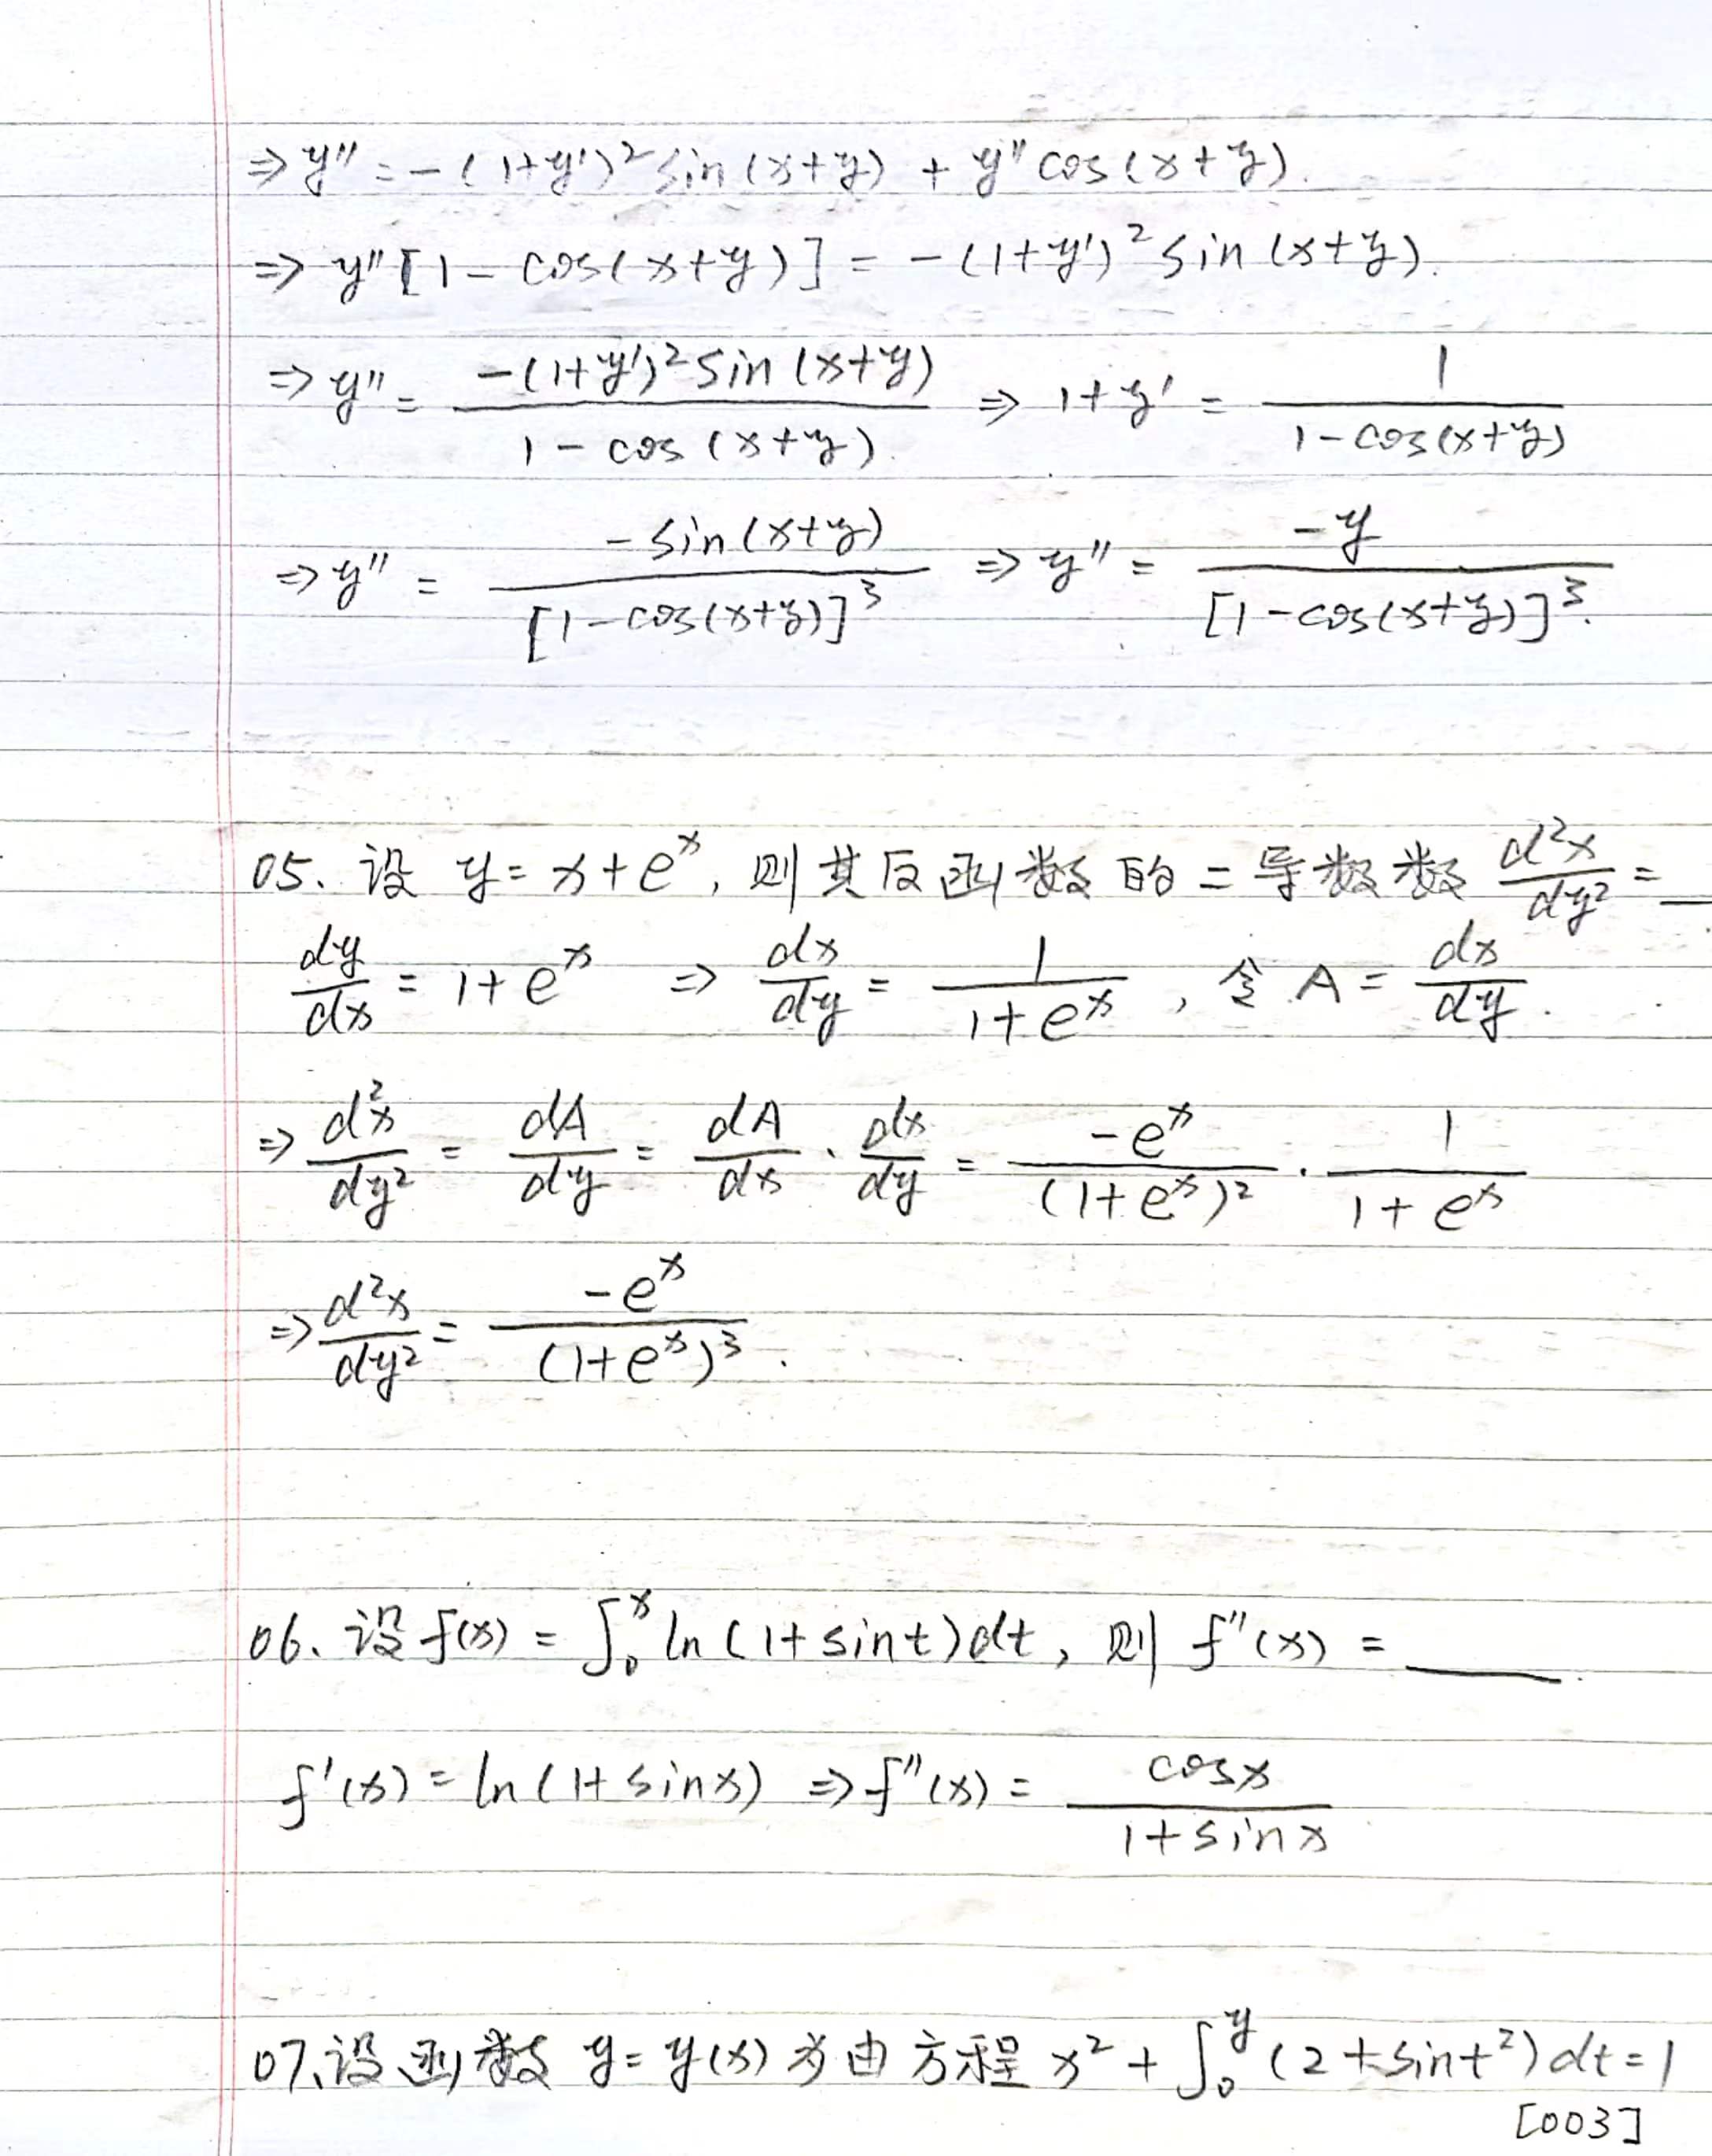 ⇒ y'' = -(1+y')² sin(x+y) + y'' cos(x+y).
⇒ y''[1 - cos(x+y)] = -(1+y')² sin(x+y).
⇒ y'' = \frac{-(1+y')² sin(x+y)}{1 - cos(x+y)} ⇒ 1+y' = \frac{1}{1-cos(x+y)}
⇒ y'' = \frac{-sin(x+y)}{[1-cos(x+y)]³} ⇒ y'' = \frac{-y}{[1-cos(x+y)]³}.
05. 设 y = x+e^x, 则其反函数的二导数数 \frac{d²x}{dy²} = __
\frac{dy}{dx} = 1+e^x ⇒ \frac{dx}{dy} = \frac{1}{1+e^x}, 令 A = \frac{dx}{dy}.
⇒ \frac{d²x}{dy²} = \frac{dA}{dy} = \frac{dA}{dx} · \frac{dx}{dy} = \frac{-e^x}{(1+e^x)²} · \frac{1}{1+e^x}
⇒ \frac{d²x}{dy²} = \frac{-e^x}{(1+e^x)³}.
06. 设 f(x) = ∫_0^x ln(1+sint)dt, 则 f''(x) = ____.
f'(x) = ln(1+sinx) ⇒ f''(x) = \frac{cosx}{1+sinx}
07. 设函数 y = y(x) 为由方程 x² + ∫_0^y (2+sint²)dt = 1
[003]